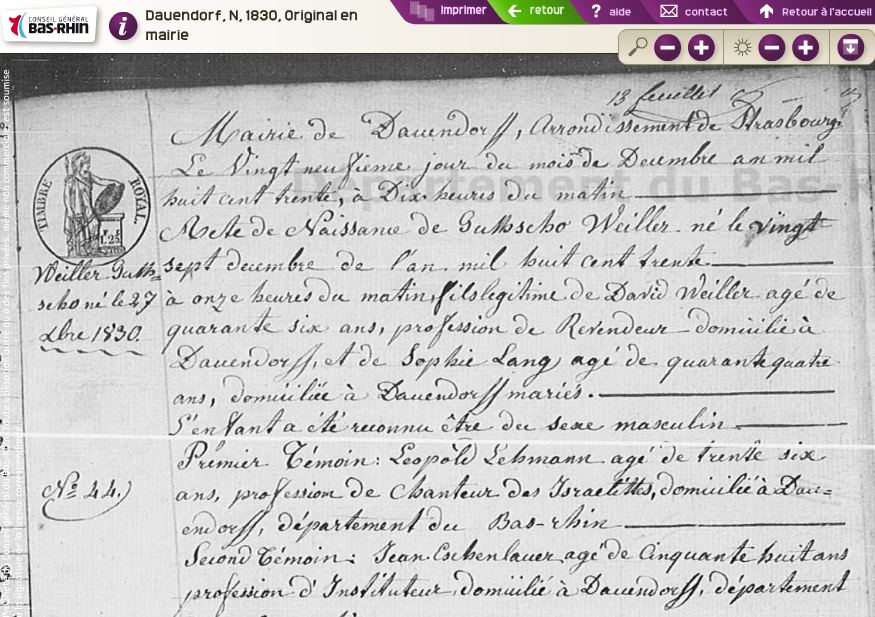 CONSEIL GÉNÉRAL
BAS-RHIN
i
Dauendorf, N, 1830, Original en
mairie
imprimer
retour
? aide
contact
Retour à l'accueil
13 feuillet
Mairie de Dauendorff, Arrondissement de Strasbourg.
Le Vingt neufieme jour du mois de Decembre an mil
huit cent trente, à Dix heures du matin
Département du Bas R
Acte de Naissance de Guthscho Weiller né le vingt
sept decembre de l'an mil huit cent trente
à onze heures du matin, fils legitime de David Weiller agé de
quarante six ans, profession de Revendeur domicilié à
Dauendorff, et de Sophie Lang agé de quarante quatre
ans, domiciliée à Dauendorff mariés.
L'enfant a été reconnu être du sexe masculin
Premier Témoin: Leopold Lehmann agé de trente six
ans, profession de Chanteur des Israelittes, domicilié à Dau=
endorff, département du Bas-rhin
Second Témoin: Jean Eschenlauer agé de Cinquante huit ans
profession d'Instituteur domicilié à Dauendorff, département
TIMBRE ROYAL.
Weiller Guth=
scho né le 27
Xbre 1830.
Nº 44.)